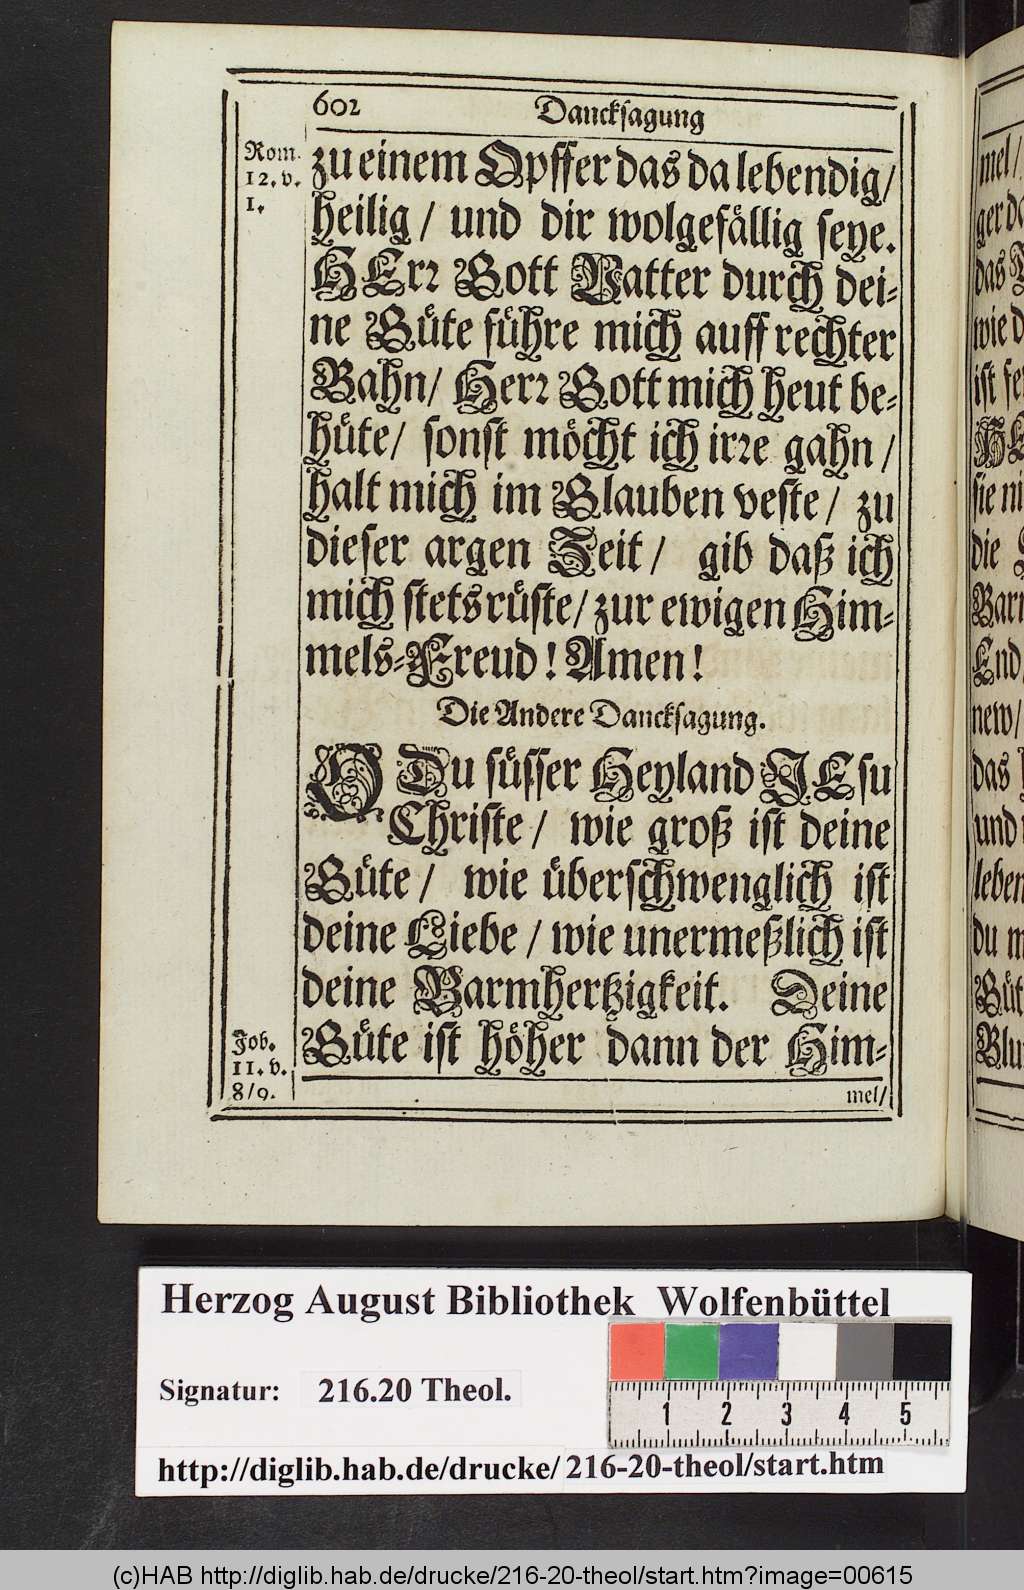 602 Dancksagung
Rom.
12. v.
1.
zu einem Opffer das da lebendig/
heilig / und dir wolgefällig seye.
HErr Gott Vatter durch dei-
ne Güte führe mich auff rechter
Bahn/ Herr Gott mich heut be-
hüte/ sonst möcht ich irre gahn /
halt mich im Glauben veste / zu
dieser argen Zeit / gib daß ich
mich stets rüste / zur ewigen Him-
mels-Freud! Amen!
Die Andere Dancksagung.
O Du süsser Heyland JEsu
Christe / wie groß ist deine
Güte / wie überschwenglich ist
deine Liebe / wie unermeßlich ist
deine Barmhertzigkeit. Deine
Güte ist höher dann der Him-
Job.
11. v.
8/9.
mel/
mel/
das
wie d
sie ni
die
End
new/
das
und
leben
du m
Herzog August Bibliothek Wolfenbüttel
Signatur: 216.20 Theol.
1 2 3 4 5
http://diglib.hab.de/drucke/216-20-theol/start.htm
(c)HAB http://diglib.hab.de/drucke/216-20-theol/start.htm?image=00615